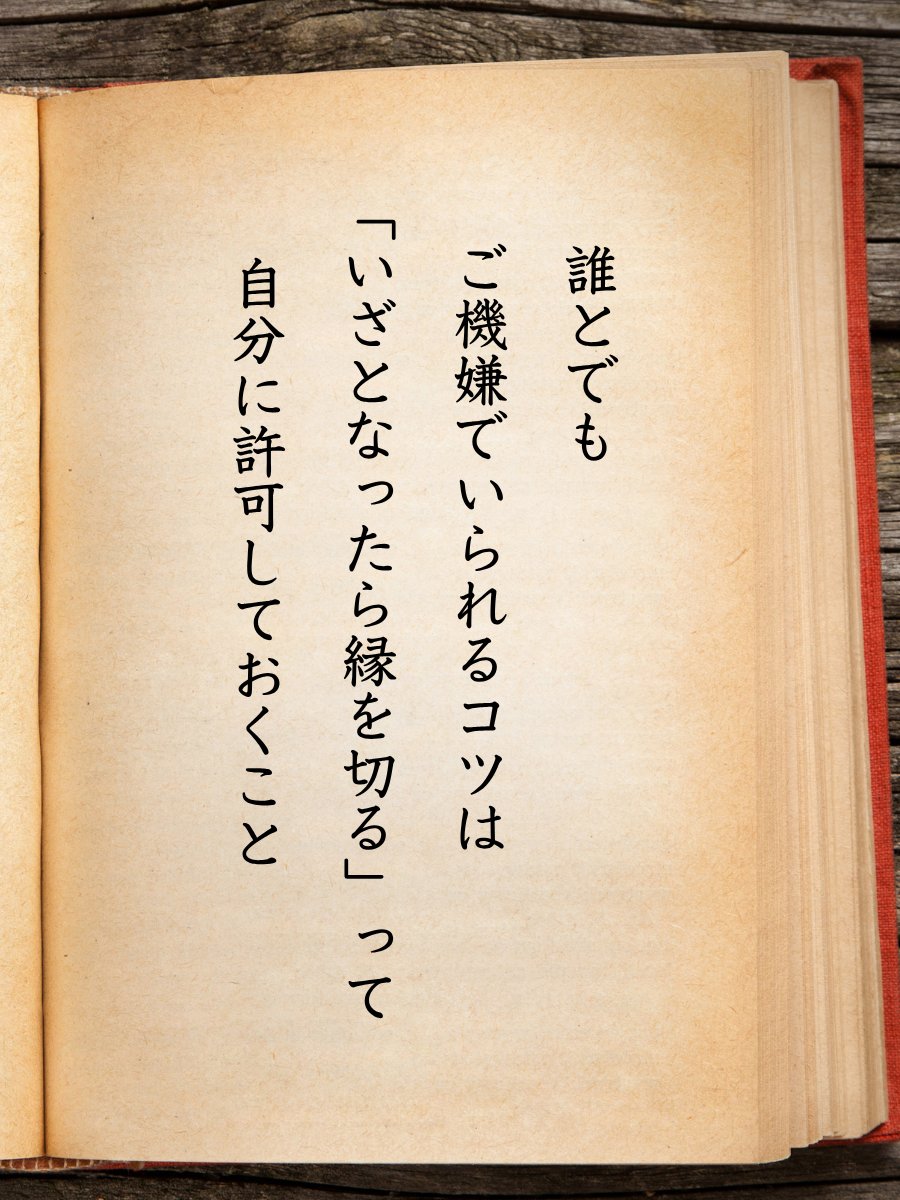 誰とでも
ご機嫌でいられるコツは
「いざとなったら縁を切る」って
自分に許可しておくこと